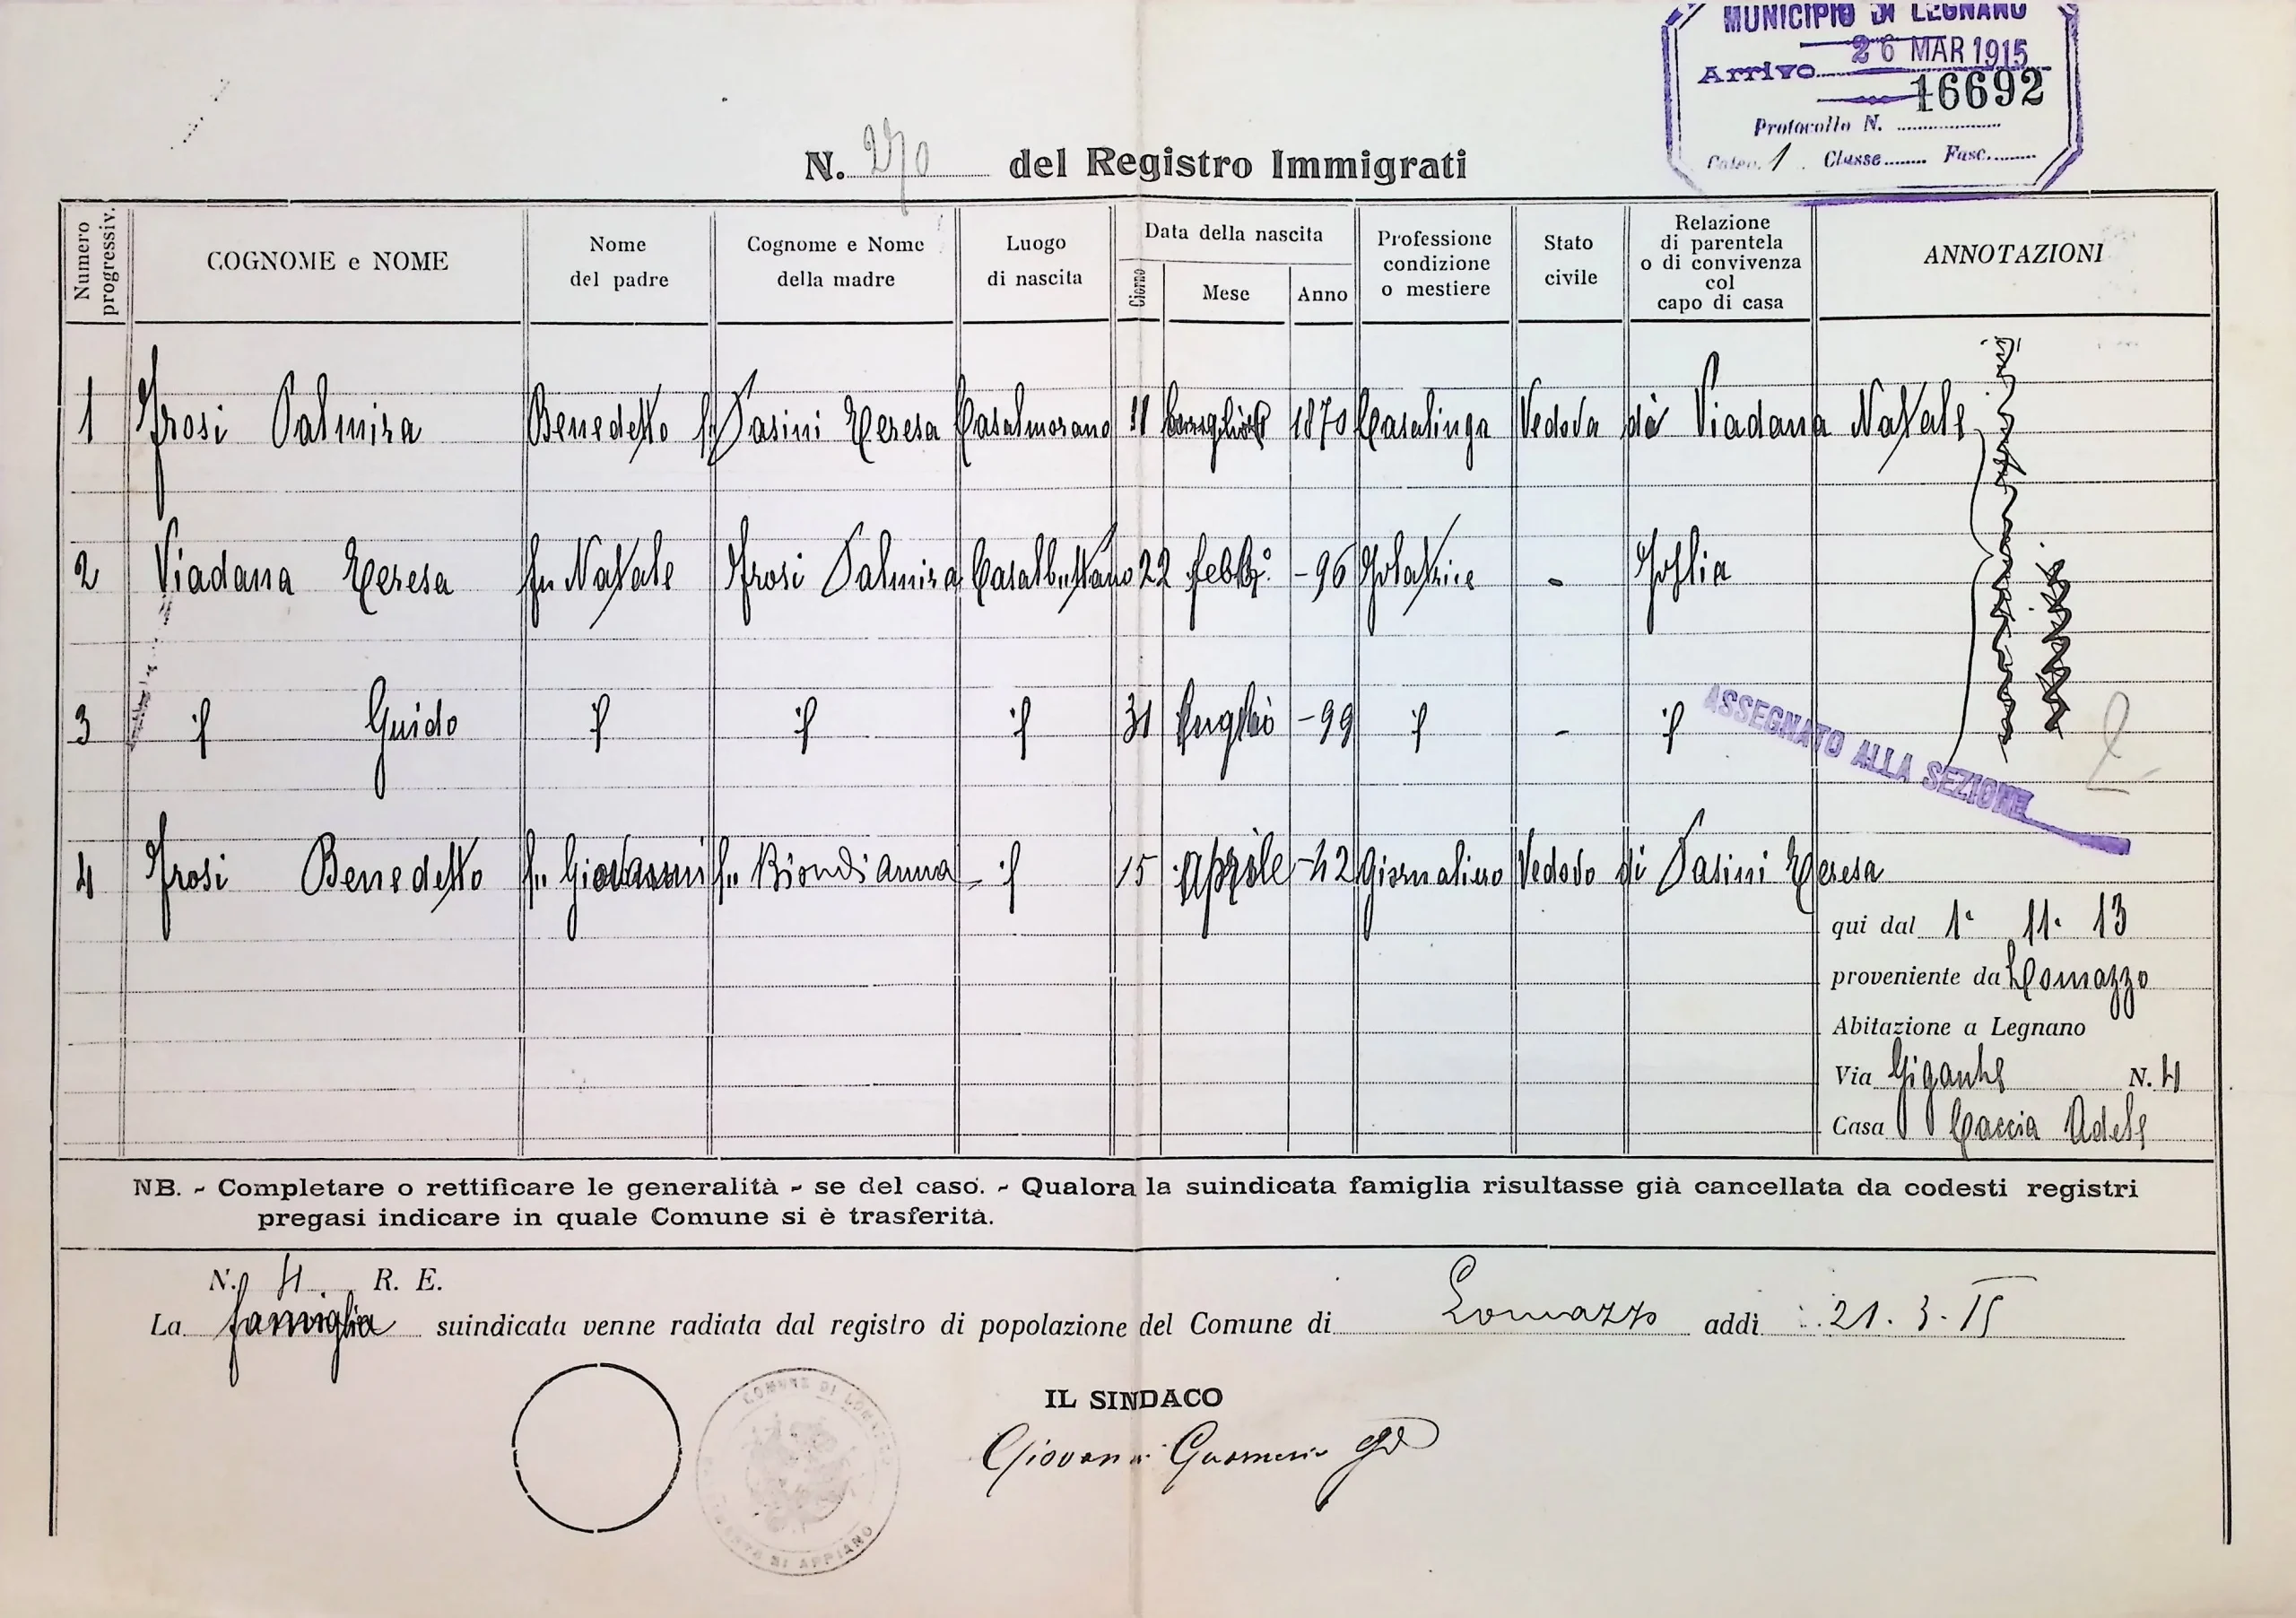 MUNICIPIO DI LEGNANO
26 MAR 1915
Arrivo
16692
Protocollo N.
Categ. 1 Classe Fasc.
N. 270 del Registro Immigrati
Numero progressiv.
COGNOME e NOME
Nome del padre
Cognome e Nome della madre
Luogo di nascita
Data della nascita
Giorno
Mese
Anno
Professione condizione o mestiere
Stato civile
Relazione di parentela o di convivenza col capo di casa
ANNOTAZIONI
1 Frosi Palmira Benedetto f. Pasini Teresa Casalmorano 11 1870 Casalinga Vedova di Viadana Natale
2 Viadana Teresa fu Natale Frosi Palmira Casalbuttano 22 febb. -96 Figlia
3 if Guido if if if 31 luglio -99 if - if
ASSEGNATO ALLA SEZIONE 2
4 Frosi Benedetto fu Giovanni fu Biondi Anna if 15 Aprile -42 Giornaliero Vedovo di Pasini Teresa
qui dal 1° 11. 13
proveniente da Lomazzo
Abitazione a Legnano
Via Gigante N. 4
Casa Caccia Adele
NB. - Completare o rettificare le generalità - se del caso. - Qualora la suindicata famiglia risultasse già cancellata da codesti registri
pregasi indicare in quale Comune si è trasferita.
N. 4 R. E.
La famiglia suindicata venne radiata dal registro di popolazione del Comune di Lomazzo addì 21. 3. 15
IL SINDACO
Giovanni
COMUNE DI LOMAZZO
DI APPIANO